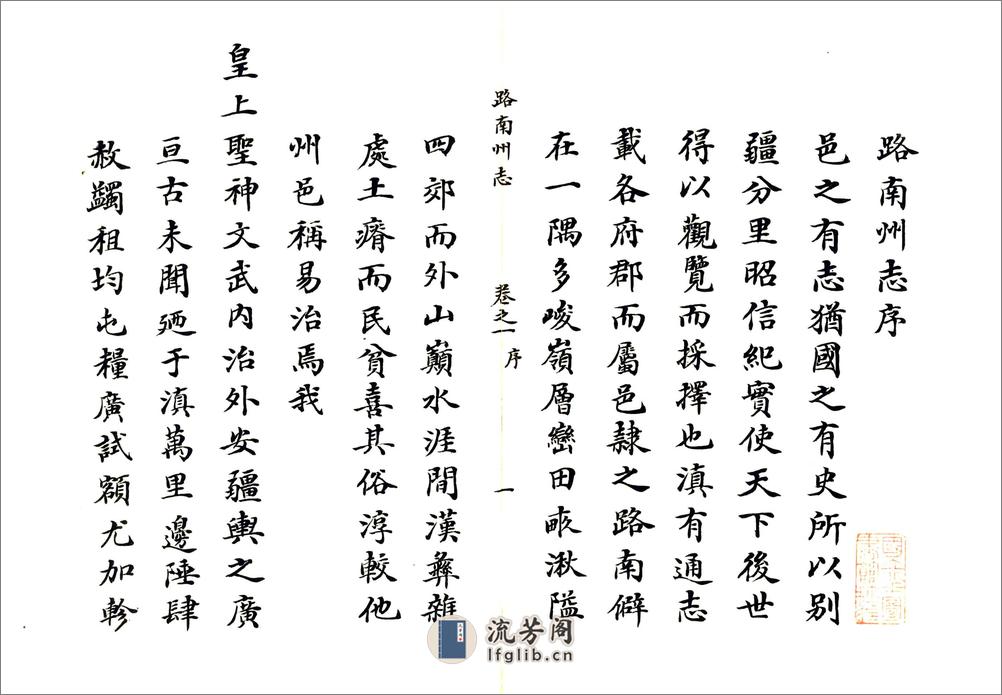 路南州志序
邑之有志猶國之有史所以别
疆分里昭信紀實使天下後世
得以觀覽而採擇也滇有通志
載各府郡而屬邑隸之路南僻
在一隅多峻嶺層巒田畞湫隘
路南州志 卷之一 序 一
四郊而外山巔水涯間漢彝雜
處土瘠而民貧喜其俗淳較他
州邑稱易治焉我
皇上聖神文武内治外安疆輿之廣
亘古未聞廼于滇萬里邊陲肆
赦蠲租均屯糧廣試額尤加軫
流芳阁
lfglib.cn